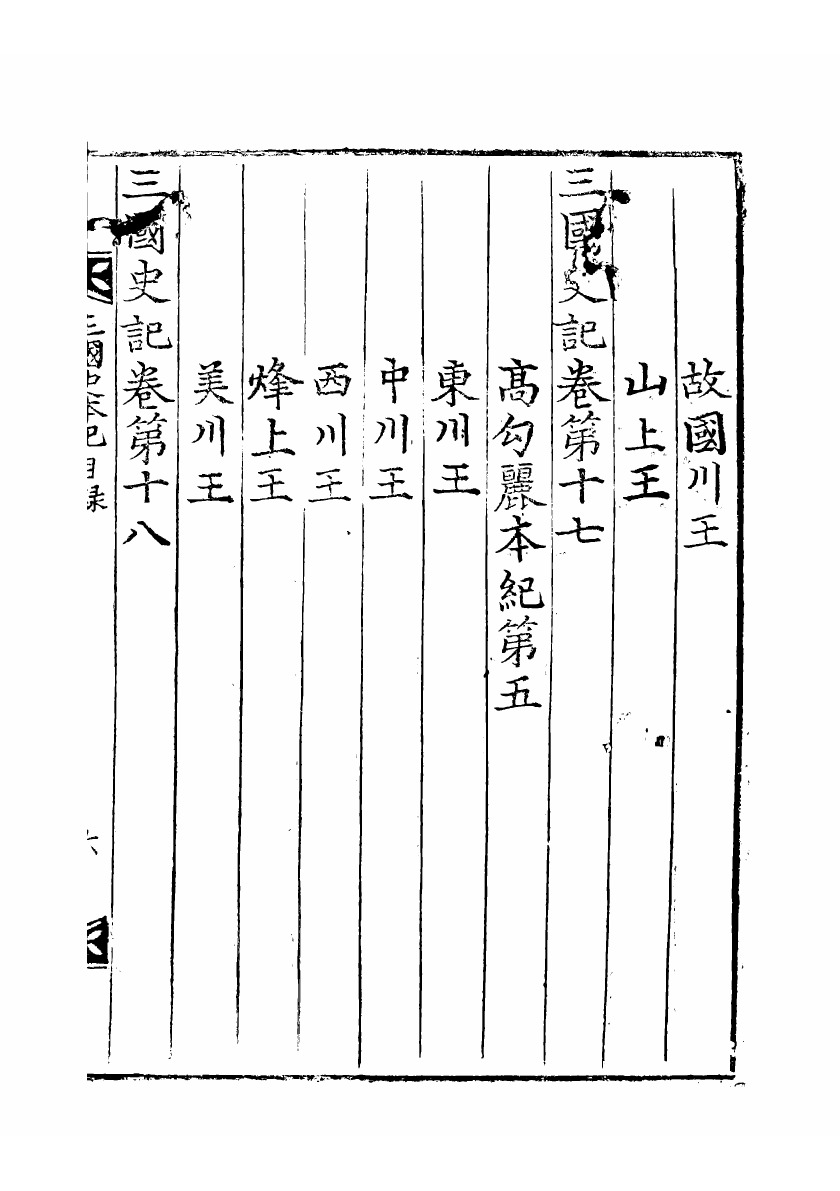 故國川王
山上王
三國史記卷第十七
高句麗本紀第五
東川王
中川王
西川王
烽上王
美川王
三國史記卷第十八
三國史本紀目錄
六